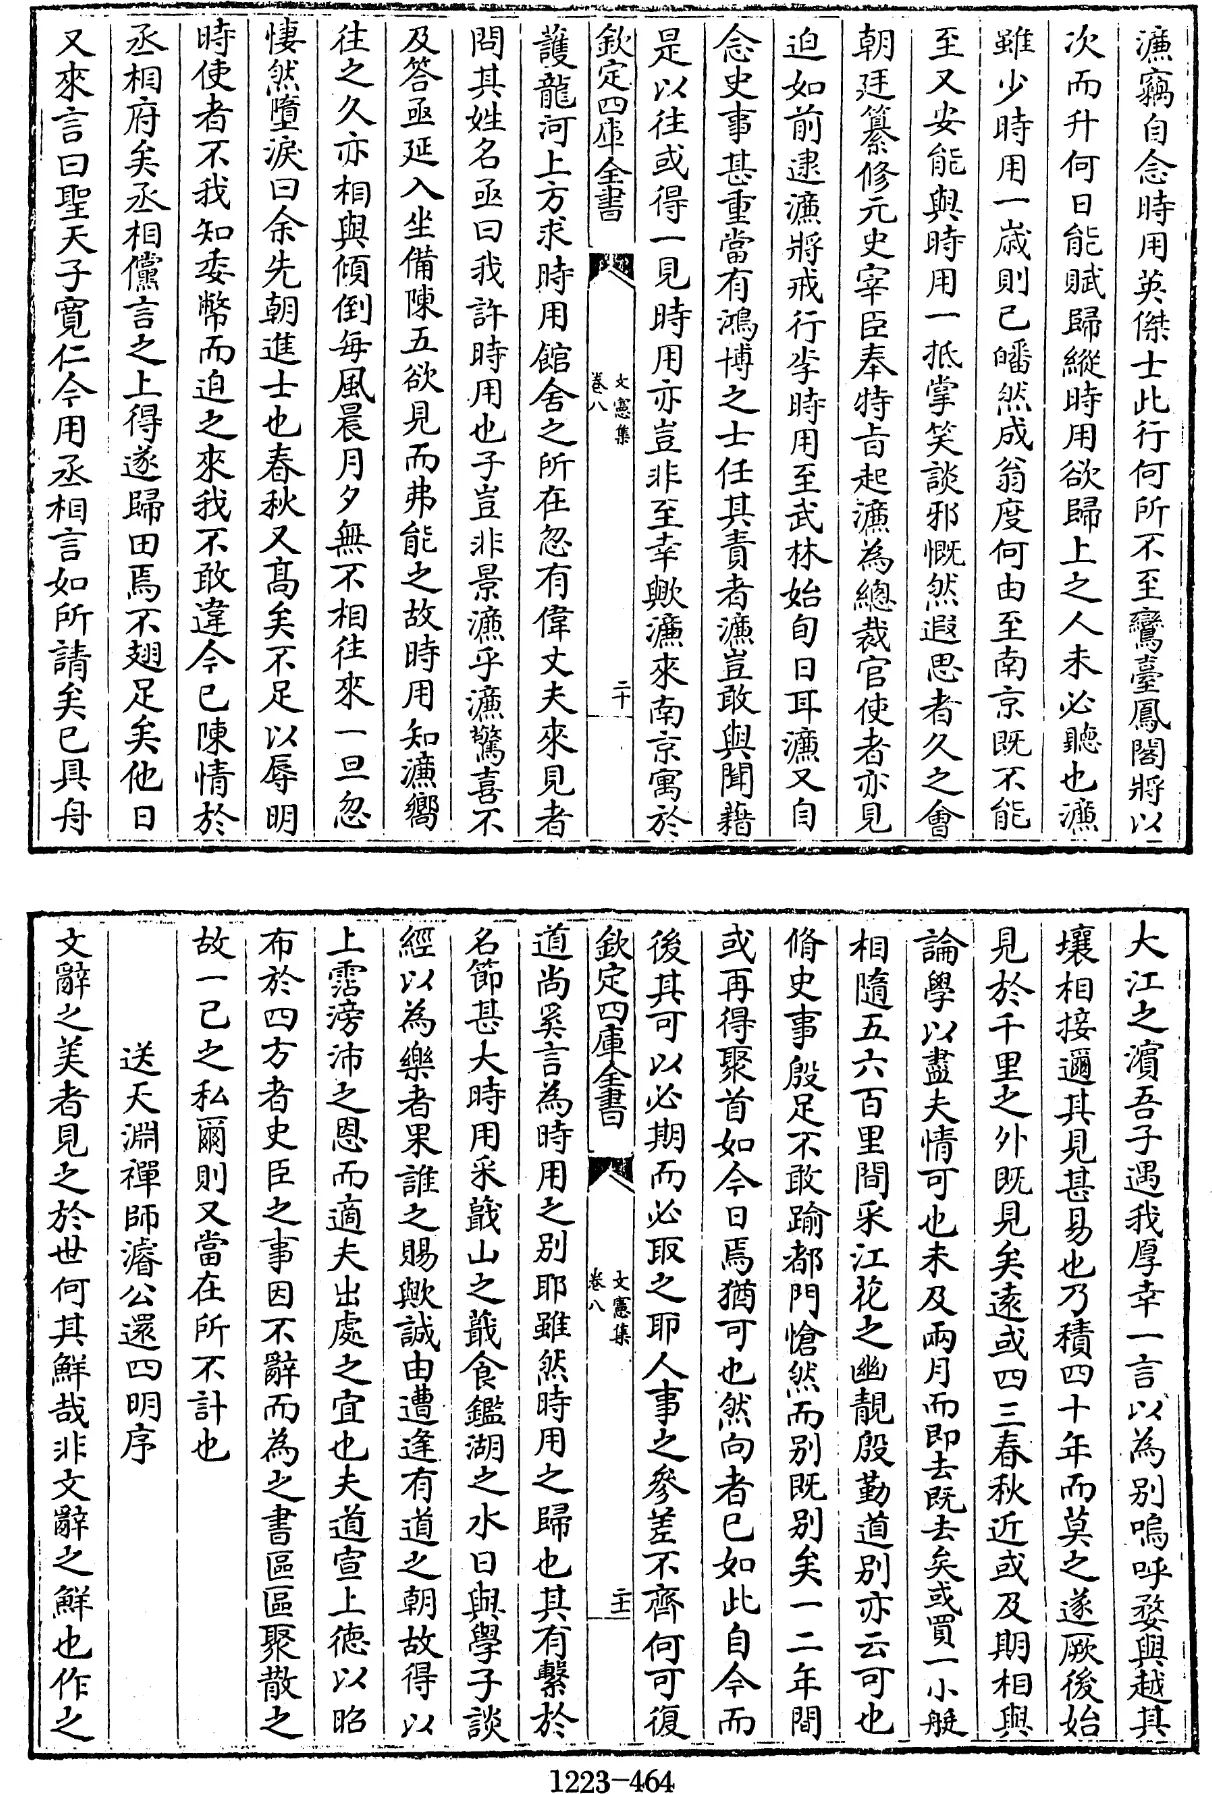 濂竊自念時用英傑士此行何所不至鸞臺鳳閣將以
次而升何日能賦歸縱時用欲歸上之人未必聽也濂
雖少時用一歲則已皤然成翁度何由至南京既不能
至又安能與時用一抵掌笑談邪慨然遐思者久之會
朝廷纂修元史宰臣奉特旨起濂為總裁官使者亦見
迫如前逮濂將戒行李時用至武林始旬日耳濂又自
念史事甚重當有鴻博之士任其責者濂豈敢與聞藉
是以往或得一見時用亦豈非至幸歟濂來南京寓於
欽定四庫全書
文憲集
卷八
二十
護龍河上方求時用館舍之所在忽有偉丈夫來見者
問其姓名亟曰我許時用也子豈非景濂乎濂驚喜不
及答亟延入坐備陳五欲見而弗能之故時用知濂嚮
往之久亦相與傾倒每風晨月夕無不相往來一旦忽
悽然墮淚曰余先朝進士也春秋又高矣不足以辱明
時使者不我知委幣而迫之來我不敢違今已陳情於
丞相府矣丞相儻言之上得遂歸田焉不翅足矣他日
又來言曰聖天子寬仁今用丞相言如所請矣已具舟
大江之濵吾子遇我厚幸一言以為别嗚呼婺與越其
壤相接邇其見甚易也乃積四十年而莫之遂厥後始
見於千里之外既見矣遠或四三春秋近或及期相與
論學以盡夫情可也未及兩月而即去既去矣或買一小艇
相隨五六百里間采江花之幽靚殷勤道别亦云可也
脩史事殷足不敢踰都門愴然而别既别矣一二年間
或再得聚首如今日焉猶可也然向者已如此自今而
後其可以必期而必取之耶人事之參差不齊何可復
欽定四庫全書
文憲集
卷八
二十一
道尚奚言為時用之别耶雖然時用之歸也其有繫於
名節甚大時用采蕺山之蕺食鑑湖之水日與學子談
經以為樂者果誰之賜歟誠由遭逢有道之朝故得以
上霑滂沛之恩而適夫出處之宜也夫道宣上徳以昭
布於四方者史臣之事因不辭而為之書區區聚散之
故一己之私爾則又當在所不計也
送天淵禪師濬公還四明序
文辭之美者見之於世何其鮮哉非文辭之鮮也作之
1223-464